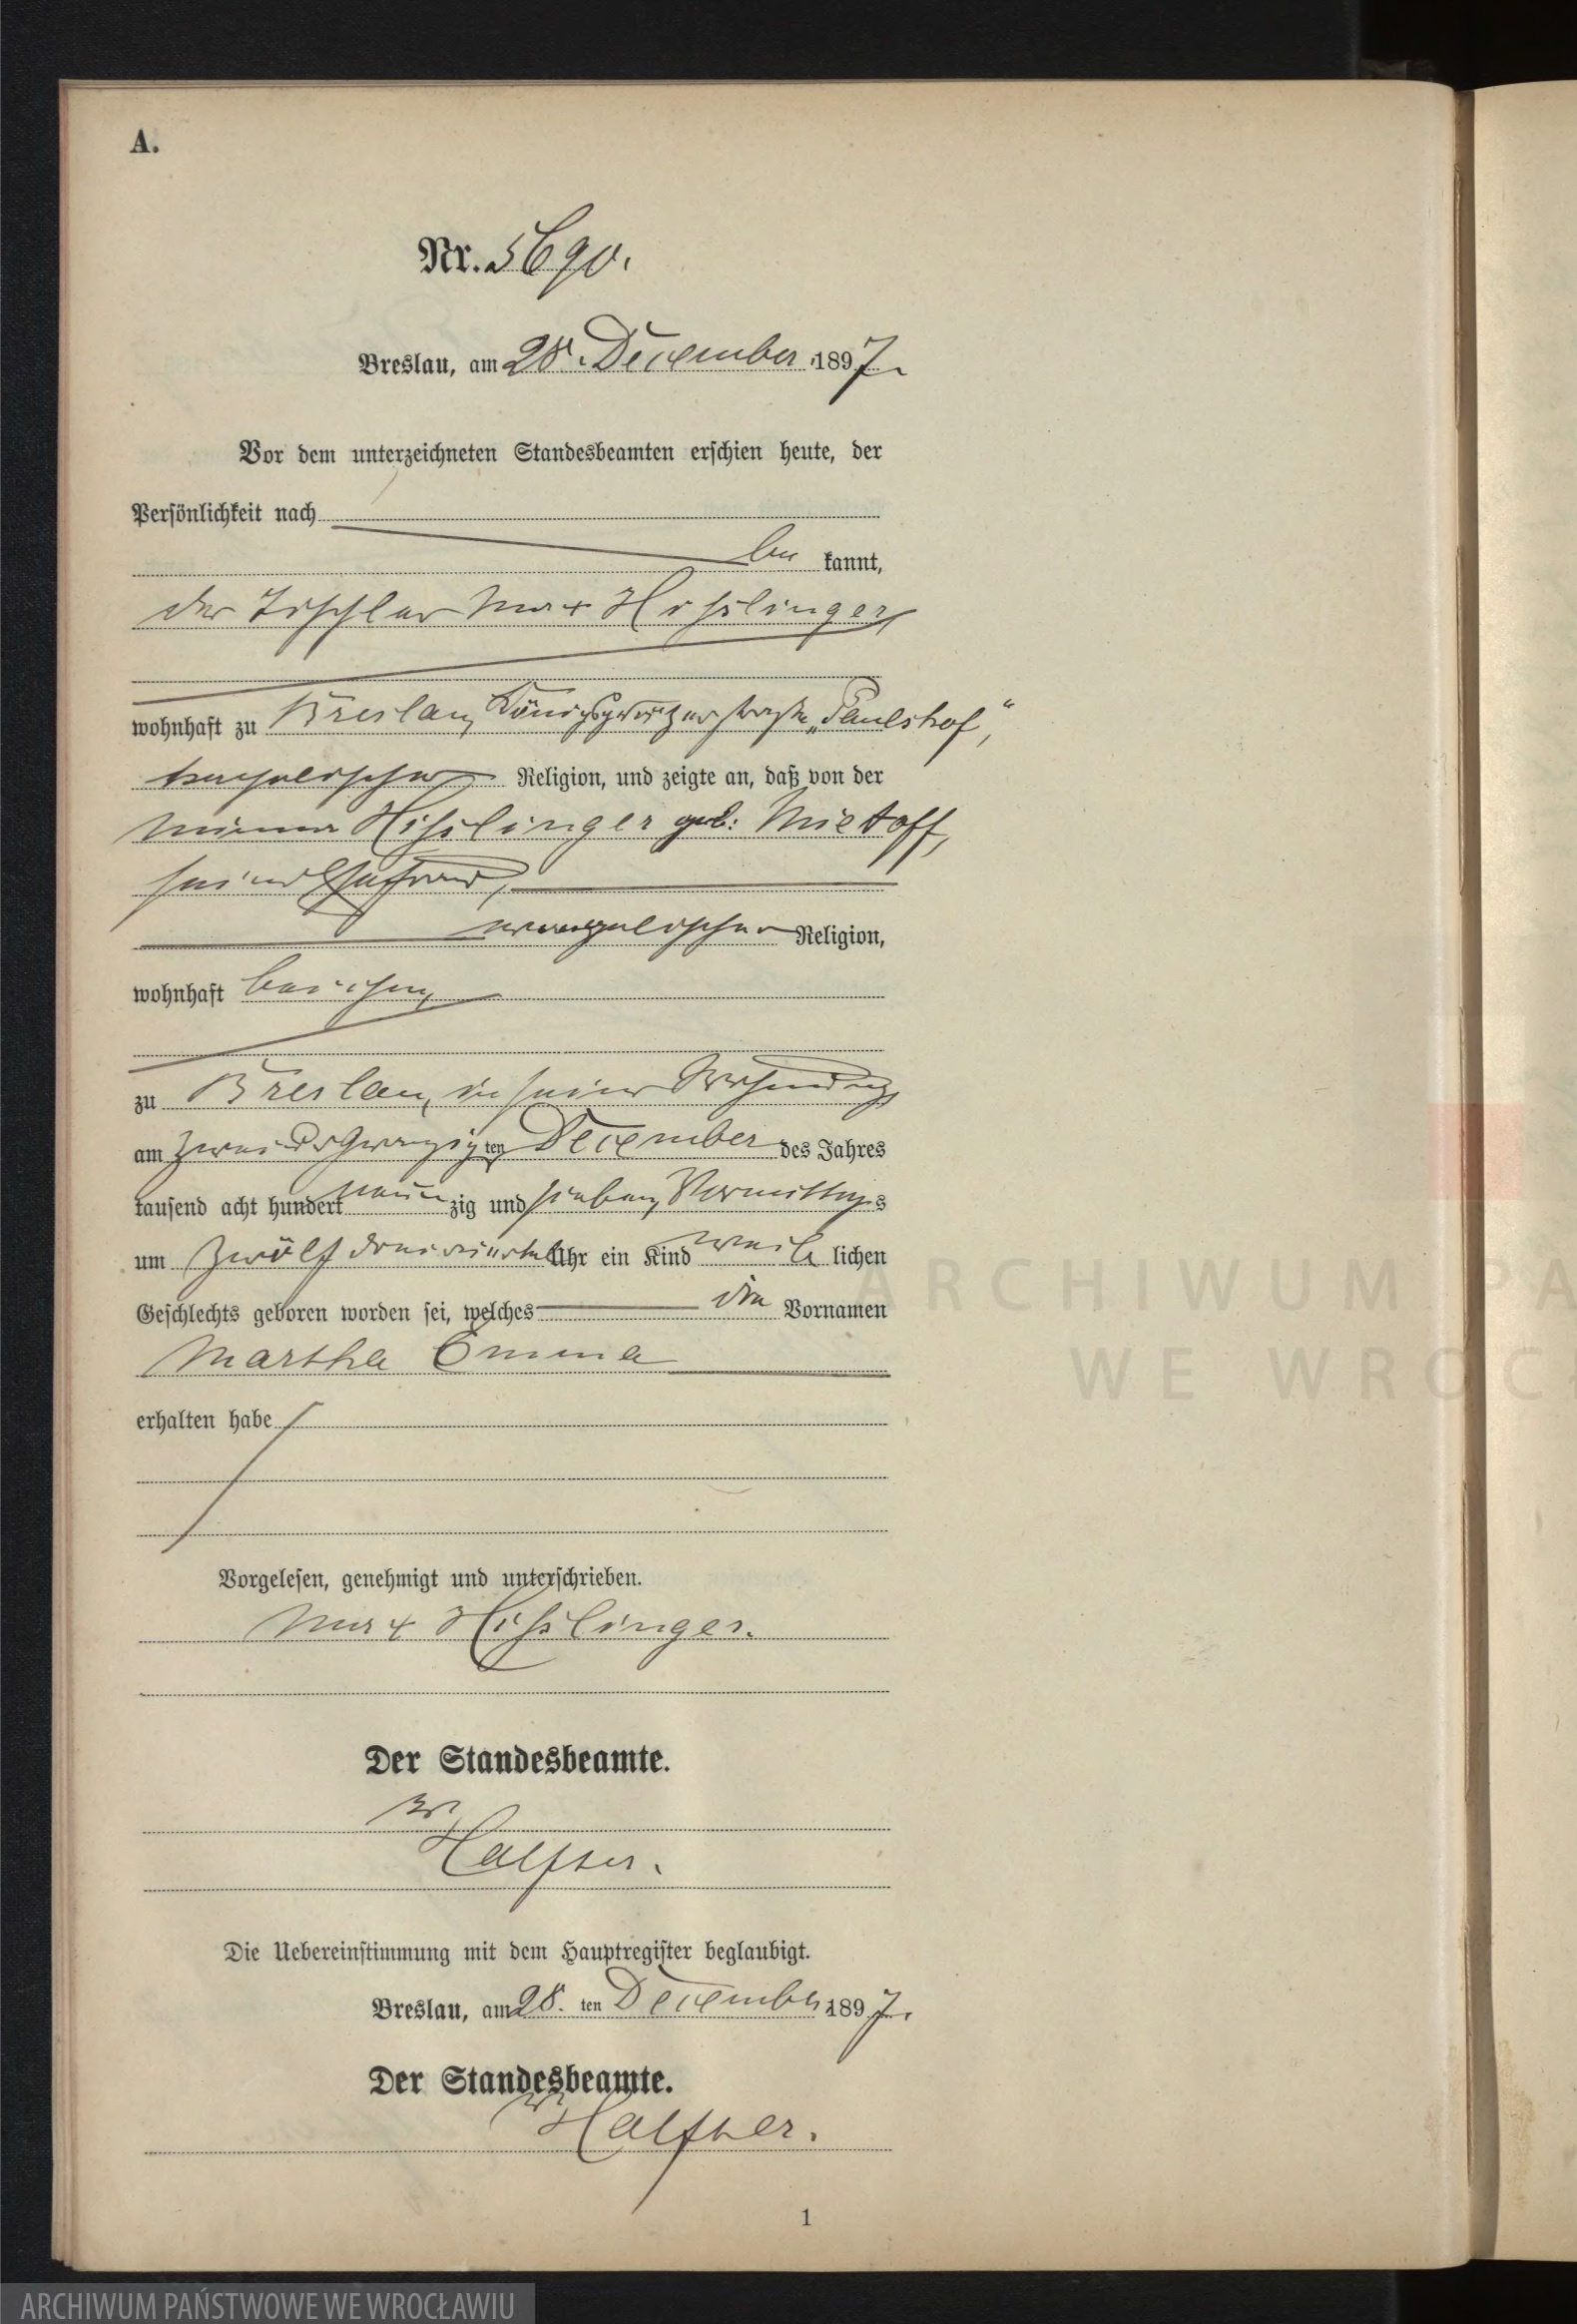 A.
Nr. 5690.
Breslau, am 28. December 1897.
Vor dem unterzeichneten Standesbeamten erschien heute, der
Persönlichkeit nach
be kannt,
der Tischler Max Hisslinger,
wohnhaft zu Breslau, „Paulshof“,
katholischer Religion, und zeigte an, daß von der
Minna Hisslinger geb: Mietoff,
seiner Ehefrau,
evangelischer Religion,
wohnhaft bei ihm,
zu Breslau, in seiner Wohnung,
am zwei und zwanzig ten December des Jahres
tausend acht hundert neun zig und sieben, Vormittags
um zwölf dreiviertel Uhr ein Kind weib lichen
Geschlechts geboren worden sei, welches die Vornamen
Martha Emma
erhalten habe
Vorgelesen, genehmigt und unterschrieben.
Max Hisslinger.
Der Standesbeamte.
Die Uebereinstimmung mit dem Hauptregister beglaubigt.
Breslau, am 28. ten December 1897.
Der Standesbeamte.
1
ARCHIWUM PA
WE WROC
ARCHIWUM PAŃSTWOWE WE WROCŁAWIU